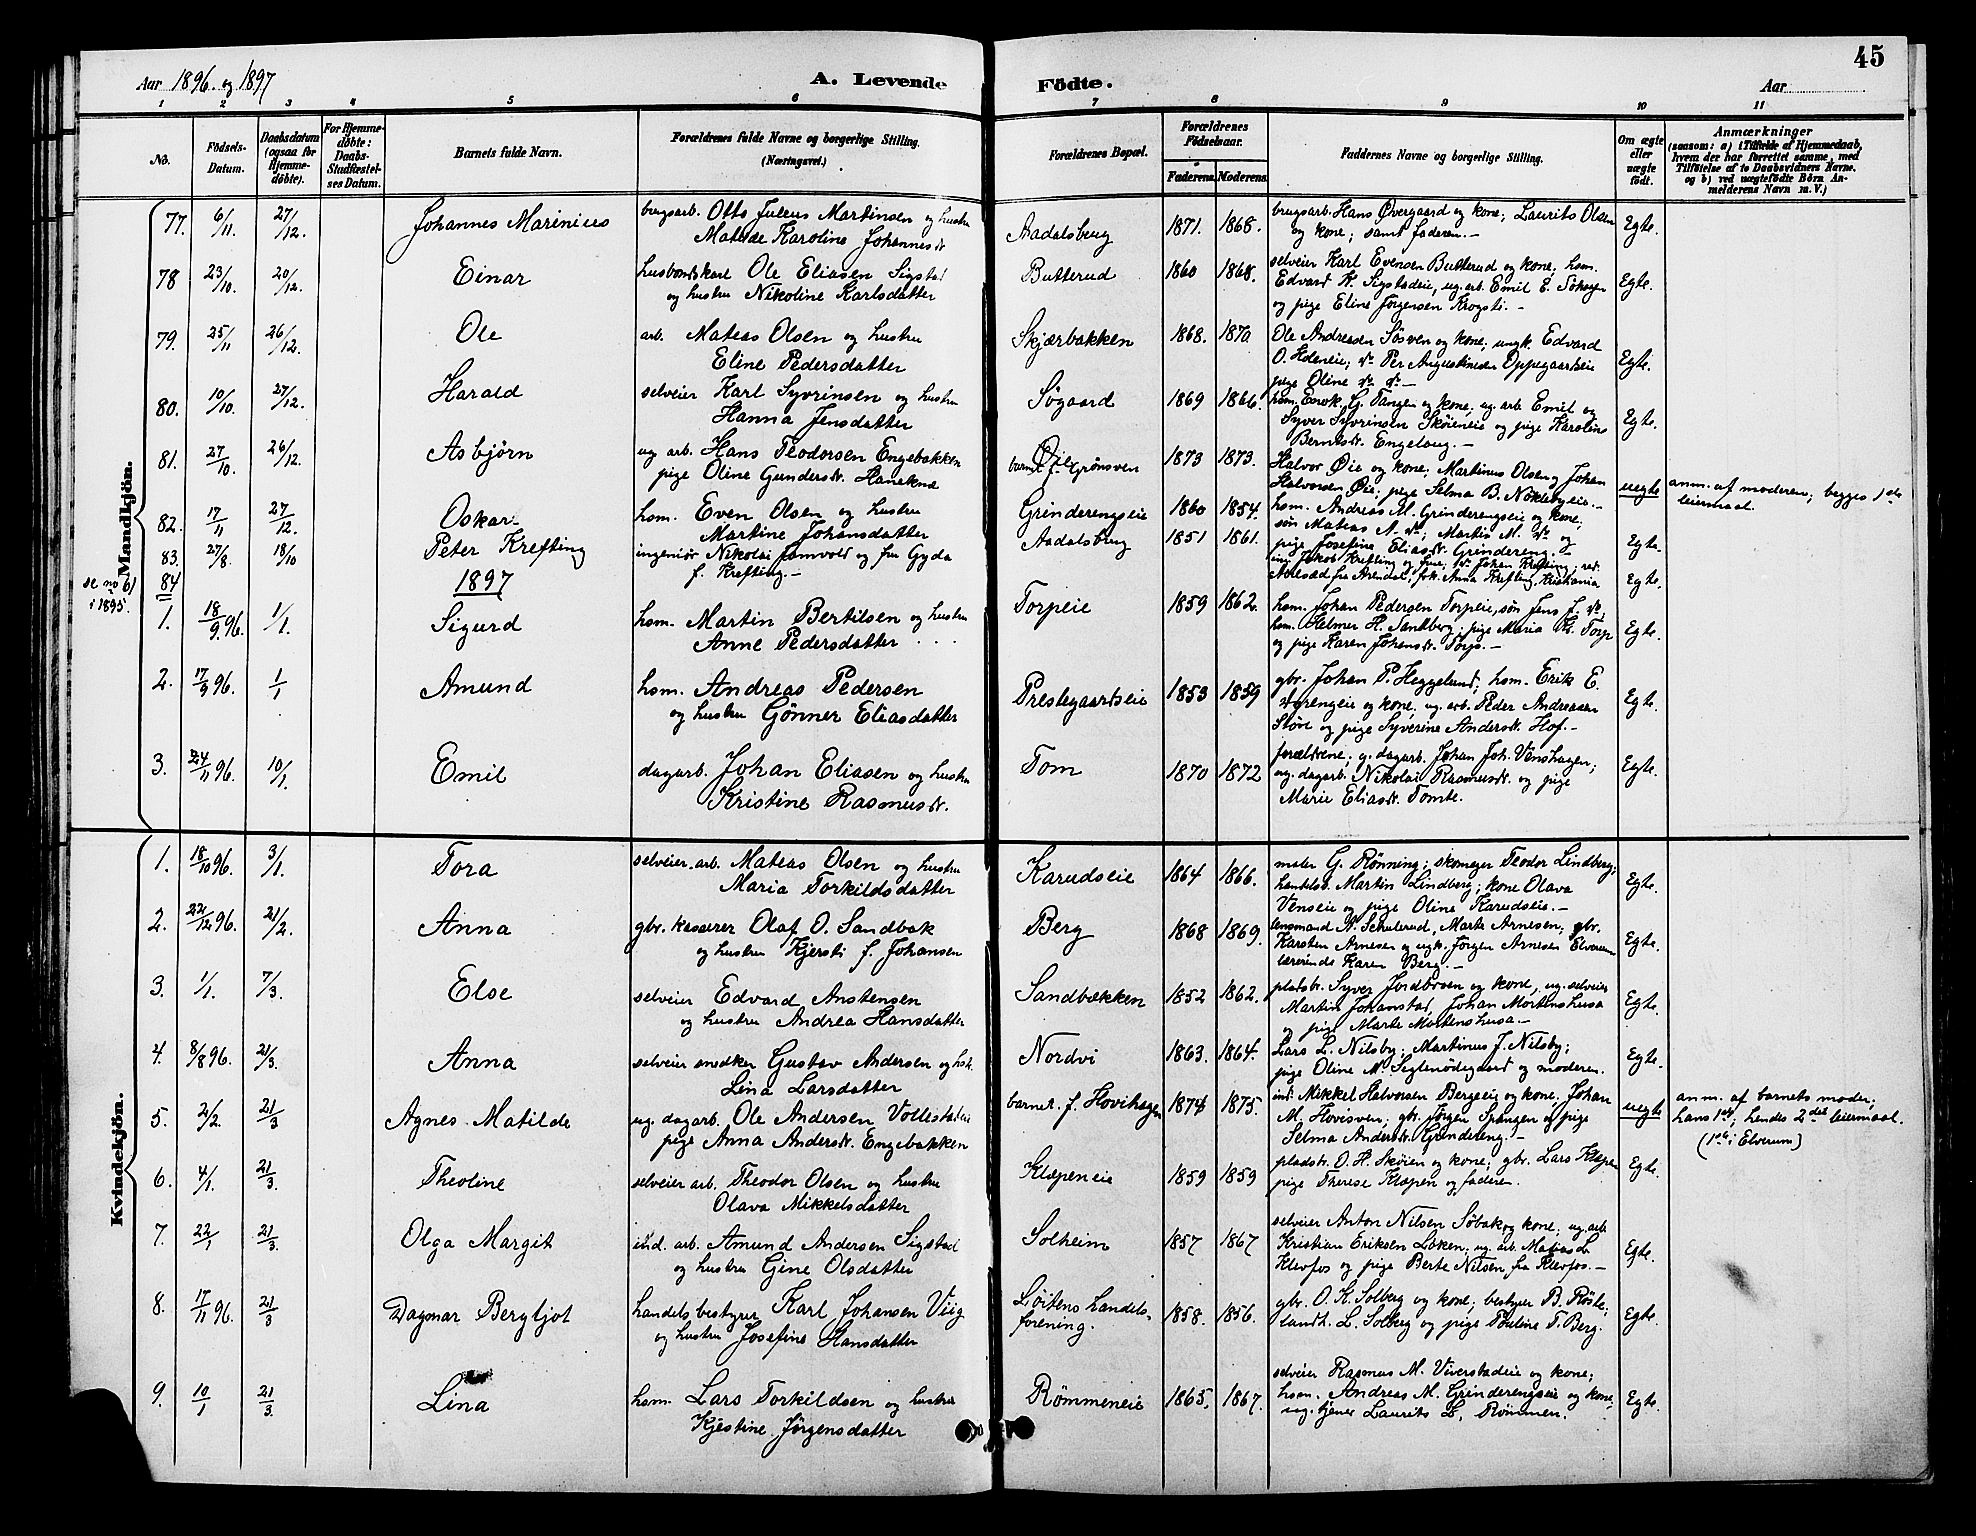 Aar 1896. og 1897
A. Levende Födte.
Aar
45
1 2 3 4 5 6 7 8 9 10 11
No.
Födsels-Datum.
Daabsdatum (ogsaa for Hjemme-döbte).
For Hjemme-döbte: Daabs-Stadfæstel-ses Datum.
Barnets fulde Navn.
Forældrenes fulde Navne og borgerlige Stilling. (Næringsvei.)
Forældrenes Bopæl.
Forældrenes Födselsaar.
Faderens. Moderens.
Faddernes Navne og borgerlige Stilling.
Om ægte eller uægte födt.
Anmærkninger
(saasom: a) i Tilfælde af Hjemmedaab, hvem der har forrettet samme, med Tilföielse af to Daabsvidners Navne, og b) ved uægtefödte Börn An-melderens Navn m. V.)
Mandkjön.
77. 6/11. 27/12. Johannes Marinius
brugsarb. Otto Julius Martinsen og hustru
Matilde Karoline Johannesdr.
Aadalsbrug 1871. 1868.
brugsarb. Hans Øvergaard og kone; Laurits Olsen
og kone; samt faderen.-
Egte.
78 23/10. 20/12. Einar
husbondskarl Ole Eliasen Sigstad
og hustru Nikoline Karlsdatter
Butterud 1860 1868.
selveier Karl Evensen Butterud og kone; hsm.
Edvard K. Sigstadeie, ug. arb. Emil E.
og pige Eline Jörgensen Krogsti.-
Egte.
79. 25/11 26/12. Ole
arb. Mateas Olsen og hustru
Eline Pedersdatter
Skjærbakken 1868. 1870
Ole Andreasen Söeven og kone; ungk. Edvard
O. Hdeneie; do Per Augustinsen Oppegaardseie
pige Oline do do-
Egte.
80. 10/10. 27/12. Harald
selveier Karl Syvrinsen og hustru
Hanna Jensdatter
Sögaard 1869 1866.
hsm. Enok G. Tangen og kone; ug. arb. Emil og
Syver Syvrinsen Skøieneie og pige Karoline
Berntsdr. Engelaug.-
Egte.
81. 27/10. 26/12. Asbjörn
ug arb. Hans Teodorsen Engebakken
pige Oline Gundersdr. Haneknæ
Øie
barnet f. Grönsven
1873 1873.
Halvor Øie og kone; Martinus Olsen og Johan
Halvorsen Øie; pige Selma B. Noklebyeie.-
uegte
anm. af moderen; begges 1ste
leiermaal.
82. 17/11 27/12. Oskar.
hsm. Even Olsen og hustru
Martine Johansdatter
Grinderengseie 1860 1854.
hsm. Andreas M. Grinderengseie og kone;
sön Mateas A. do; Martin M. do og
pige Josefine Eliasdr. Grindereng.-
Egte.
83. 27/8. 18/10 Peter Krefting
ingeniör Nikolai Jamvold og fru Gyda
f. Krefting.-
Aadalsbrug 1851 1861.
ing. Jakob Krefting og frue; do Johan Krefting; red.
fra Arendal; frk. Anna Krefting, Kristiania
Egte.
84
se no 61
i 1895.
1897
1. 18/9.96. 1/1. Sigurd
hsm. Martin Bertilsen og hustru
Anne Pedersdatter
Torpeie 1859 1862.
hsm. Johan Pedersen Torpeie, sön Jens J. do;
hsm. Helmer H. Sandberg; pige Maria K. Torp
og pige Karen Johansdr. Torp.-
Egte.
2. 17/9 96. 1/1 Amund
hsm. Andreas Pedersen
og hustru Gönner Eliasdatter
Prestegaardseie 1853 1859
gbr. Johan P. Heggelund; hsm. Erik E.
og kone; ug. arb. Peder Andreasen
Störe og pige Syverine Andersdr. Hof.-
Egte.
3. 24/11 96. 10/1. Emil
dagarb. Johan Eliasen og hustru
Kristine Rasmusdr.
Tom 1870 1872
forældrene; g. dagarb. Johan Joh. Venshagen;
ug. dagarb. Nikolai Rasmusdr. og pige
Marie Eliasdr. Tomte.
Egte.
Kvindekjön.
1. 18/10 96. 3/1. Tora
selveier. arb. Mateas Olsen og hustru
Maria Torkildsdatter
Karudseie 1864 1866.
maler G. Rönning; skomager Teodor Lindberg;
handelsb. Martin Lindberg; kone Olava
Venseie og pige Oline Karudseie.-
Egte.
2. 22/12 96. 21/2. Anna
gbr. kasserer Olaf O. Sandbak
og hustru Kjersti f. Johansen
Berg 1868 1869.
lensmand A. Schulerud, Marte Arnesen; gbr.
Karsten Arnesen og ugk. Jörgen Arnesen Elverum
lærerinde Karen Berg.-
Egte.
3. 1/1. 7/3. Else
selveier Edvard Anstensen
og hustru Andrea Hansdatter
Sandbækken 1852 1862.
pladsbr. Syver Jordbrsen og kone, ug. selveier
Martin Johanstad, Johan Mortenshusa
og pige Marte Mortenshusa.-
Egte.
4. 8/8 96. 21/3. Anna
selveier snedker Gustav Andersen og hst.
Lina Larsdatter
Nordvi 1863. 1864.
Lars L. Nilsby; Martinus J. Nilsby;
pige Oline M. Siglenödegaard og moderen.
Egte.
5. 2/2. 21/3 Agnes Matilde
ug. dagarb. Ole Andersen Vollestadeie
pige Anna Andersdr. Engebakken
barnet. f. Hovihagen 1874 1875.
ind. Mikkel Halvorsen Bergseie og kone, Johan
M. Hovisven, gbr. Jörgen Spangen og pige
Selma Andersdr. Grindereng.-
uegte
anm. af barnets moder;
hans 1ste; hendes 2det leiermaal.
(1ste i Elverum)
6. 4/1. 21/3. Theoline
selveier arb. Theodor Olsen og hustru
Olava Mikkelsdatter
Klæpeneie 1859 1859
pladsbr. O. H. Skøien og kone; gbr. Lars Klæpen
pige Therese Klæpen og faderen.
Egte.
7. 22/1 21/3. Olga Margit
ind. arb. Amund Andersen Sigstad
og hustru Gine Olsdatter
Solheim 1857 1867
selveier Anton Nilsen Söbak og kone; ug. arb.
Kristian Eriksen Løken; ug. arb. Matias L.
Klevfos og pige Berte Nilsen, fra Klevfos.-
Egte.
8. 17/11 96. 21/3 Dagmar Bergljot
handelsbestyrer Karl Johansen Viig
og hustru Josefine Hansdatter
Löitens handels-
forening.
1858. 1856.
gbr. O. K. Solberg og kone; bestyrer B. Röste;
landh. L. Solberg og pige Pauline T. Berg.
Egte.
9. 10/1 21/3. Lina
hsm. Lars Torkildsen og hustru
Kjestine Jörgensdatter
Römmeneie 1865. 1867.
selveier Rasmus M. Viverstadeie og kone;
hsm. Andreas M. Grinderengseie og kone,
ug. tjener Laurits L. Römmen.
Egte.